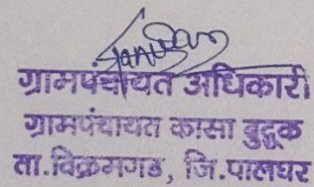 ग्रामपंचायत अधिकारी
ग्रामपंचायत कासा बुद्रूक
ता.विक्रमगड, जि.पालघर